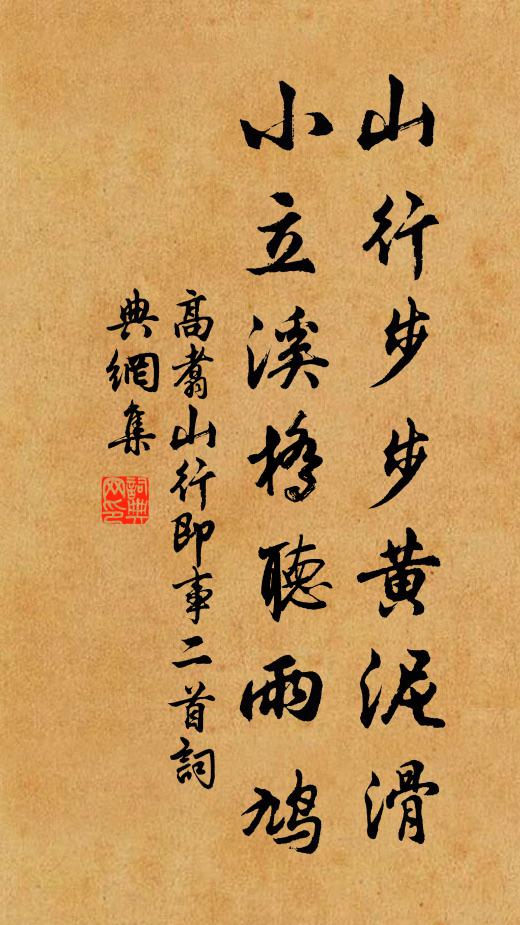 山行步步黄泥滑
小立溪橋聽雨鳩
高翥山行即事二首詞
典網集
詞典網印